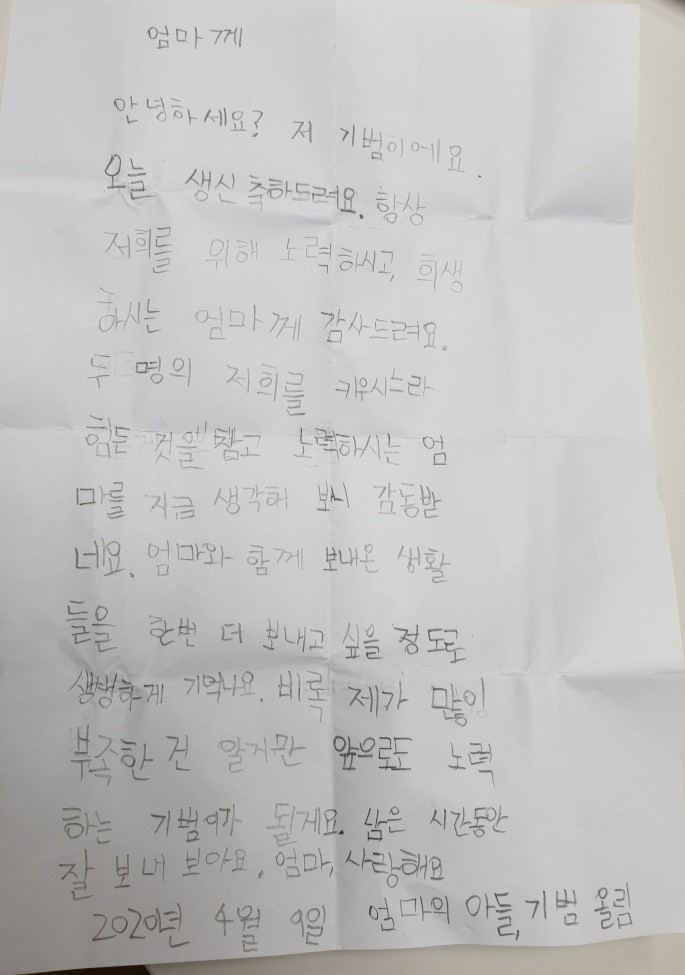 엄마께
안녕하세요? 저 기범이에요.
오늘 생신 축하드려요. 항상
저희를 위해 노력하시고, 희생
하시는 엄마께 감사드려요.
두 명의 저희를 키우시느라
힘든 것을 참고 노력하시는 엄
마를 지금 생각해 보니 감동받
네요. 엄마와 함께 보내온 생활
들을 한번 더 보내고 싶을 정도로
생생하게 기억나요. 비록 제가 많이
부족한 건 알지만 앞으로도 노력
하는 기범이가 될게요. 남은 시간동안
잘 보내 보아요. 엄마, 사랑해요
2020년 4월 9일 엄마의 아들, 기범 올림